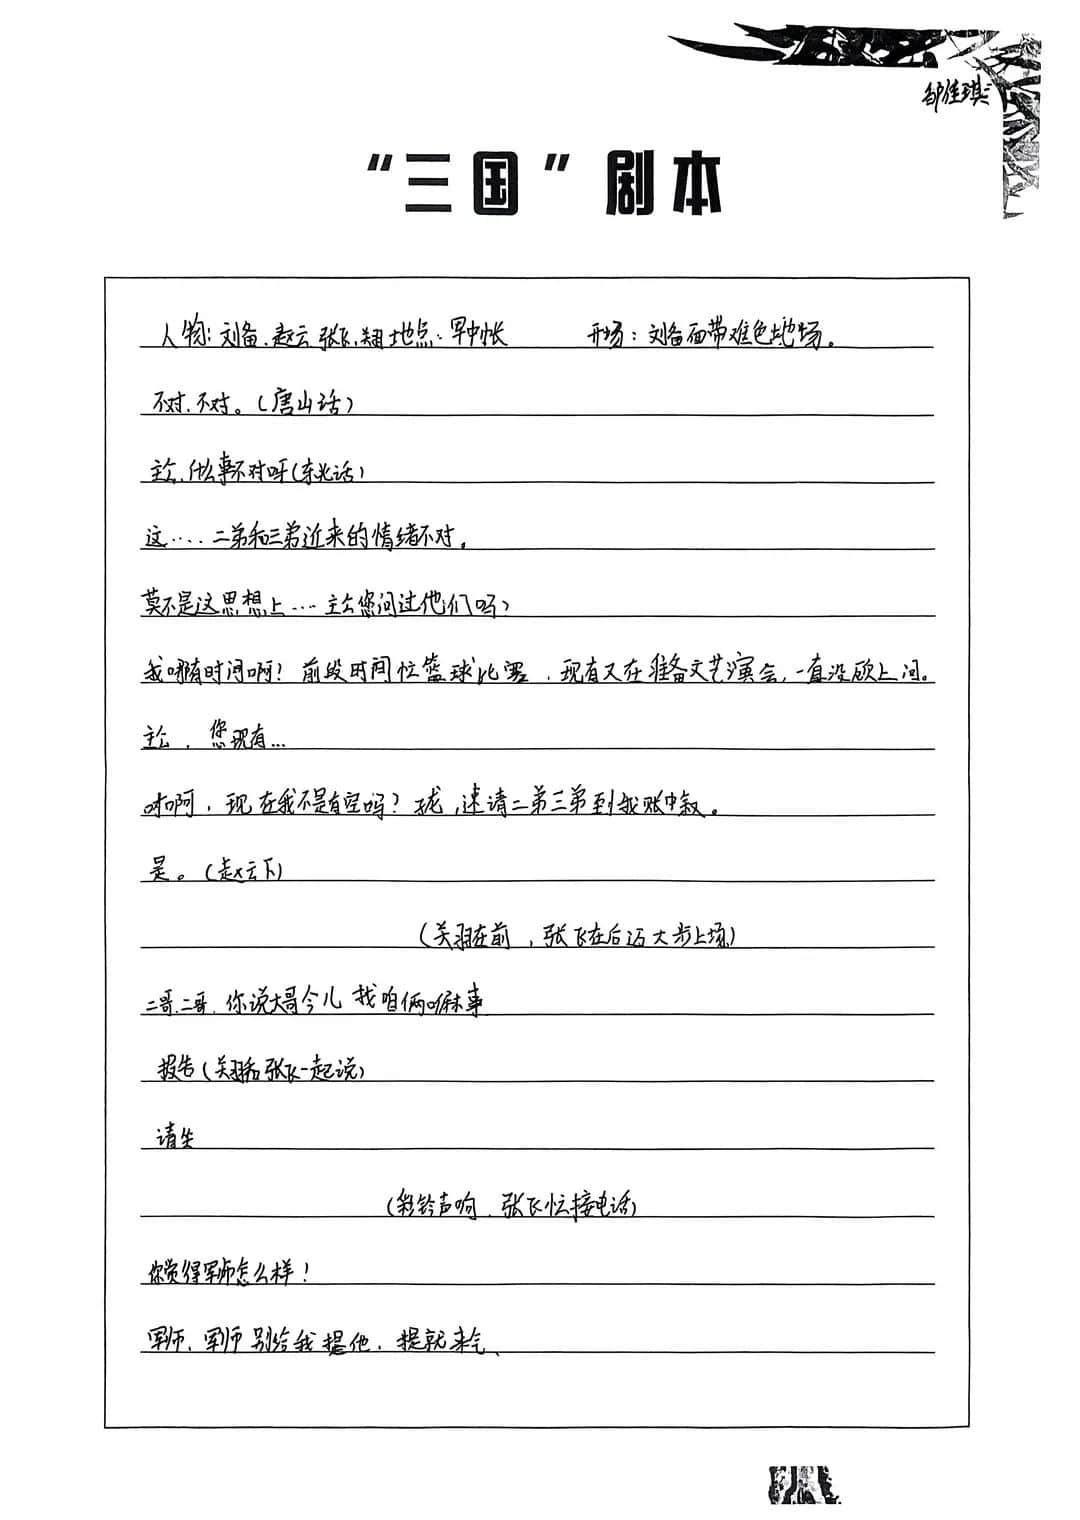 邹佳琪
“三国”剧本
人物：刘备、赵云、张飞、关羽 地点：军中帐 开场：刘备面带难色地上场。
不对、不对。（唐山话）
主公、什么事不对呀（东北话）
这····二弟和三弟近来的情绪不对。
莫不是这思想上···主公您问过他们吗？
我哪有时间啊！前段时间忙篮球比赛，现有又在准备文艺演会，一直没顾上问。
主公，您现有...
对啊，现在我不是有空吗？，速请二弟三弟到我账中叙。
是。（赵云下）
（关羽在前，张飞在后迈大步上场）
二哥、二哥、你说大哥今儿找咱俩嘛事
报告（关羽和张飞一起说）
请坐
（铃声响、张飞忙接电话）
你觉得军师怎么样！
军师、军师别给我提他，提就来气、